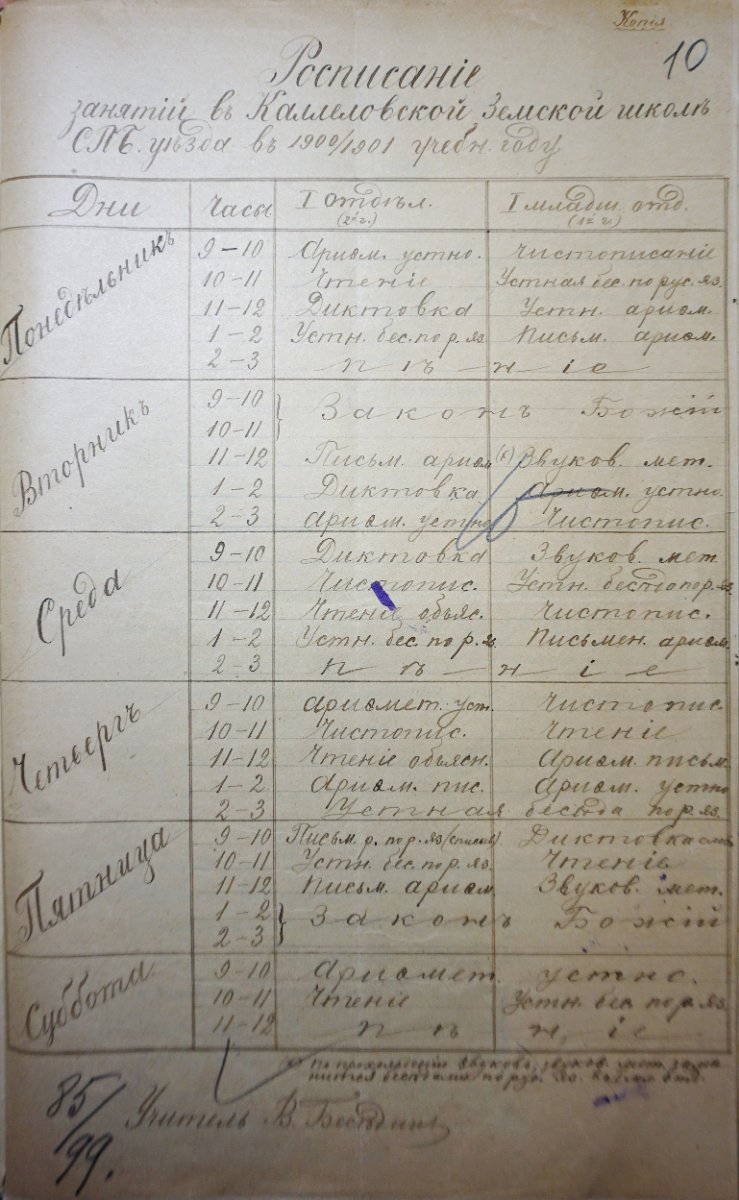 Копія
10
Росписаніе
занятій въ Каллеловской Земской школѣ
СПБ. уѣзда въ 1900/1901 учебн. году
Дни Часы I отдѣл. I младш. отд.
(2й г.) (1й г.)
Понедѣльникъ
9-10 Ариѳм. устно. Чистописаніе
10-11 Чтеніе Устная бес. по рус. яз.
11-12 Диктовка Устн. ариѳм.
1-2 Устн. бес. по р. яз. Письм. ариѳм.
2-3 п ѣ - н і е
Вторникъ
9-10 } Законъ Божій
10-11
11-12 Письм. ариѳм Звуков. мет.
1-2 Диктовка Ариѳм. устно.
2-3 Ариѳм. устно Чистопис.
Среда
9-10 Диктовка Звуков. мет.
10-11 Чистопис. Устн. бесѣда по р. яз.
11-12 Чтеніе объяс. Чистопис.
1-2 Устн. бес. по р. яз. Письмен. ариѳм.
2-3 п ѣ - н і е
Четвергъ
9-10 Ариѳмет. уст. Чистопис.
10-11 Чистопис. Чтеніе
11-12 Чтеніе объясн. Ариѳм. письм.
1-2 Ариѳм. пис. Ариѳм. устно
2-3 Устная бесѣда по р. яз.
Пятница
9-10 Письм. р. по р. яз. Диктовка
10-11 Устн. бес. по р. яз. Чтеніе
11-12 Письм. ариѳм. Звуков. мет.
1-2 } Законъ Божій
2-3
Суббота
9-10 Ариѳмет. устно.
10-11 Чтеніе Устн. бес. по р. яз.
11-12 п ѣ н і е
По прохожденіи звуковъ, звуков. мет. замѣ-
нится бесѣдами по рус. яз. отд.
85/99.
Учитель В. Бесѣдинъ